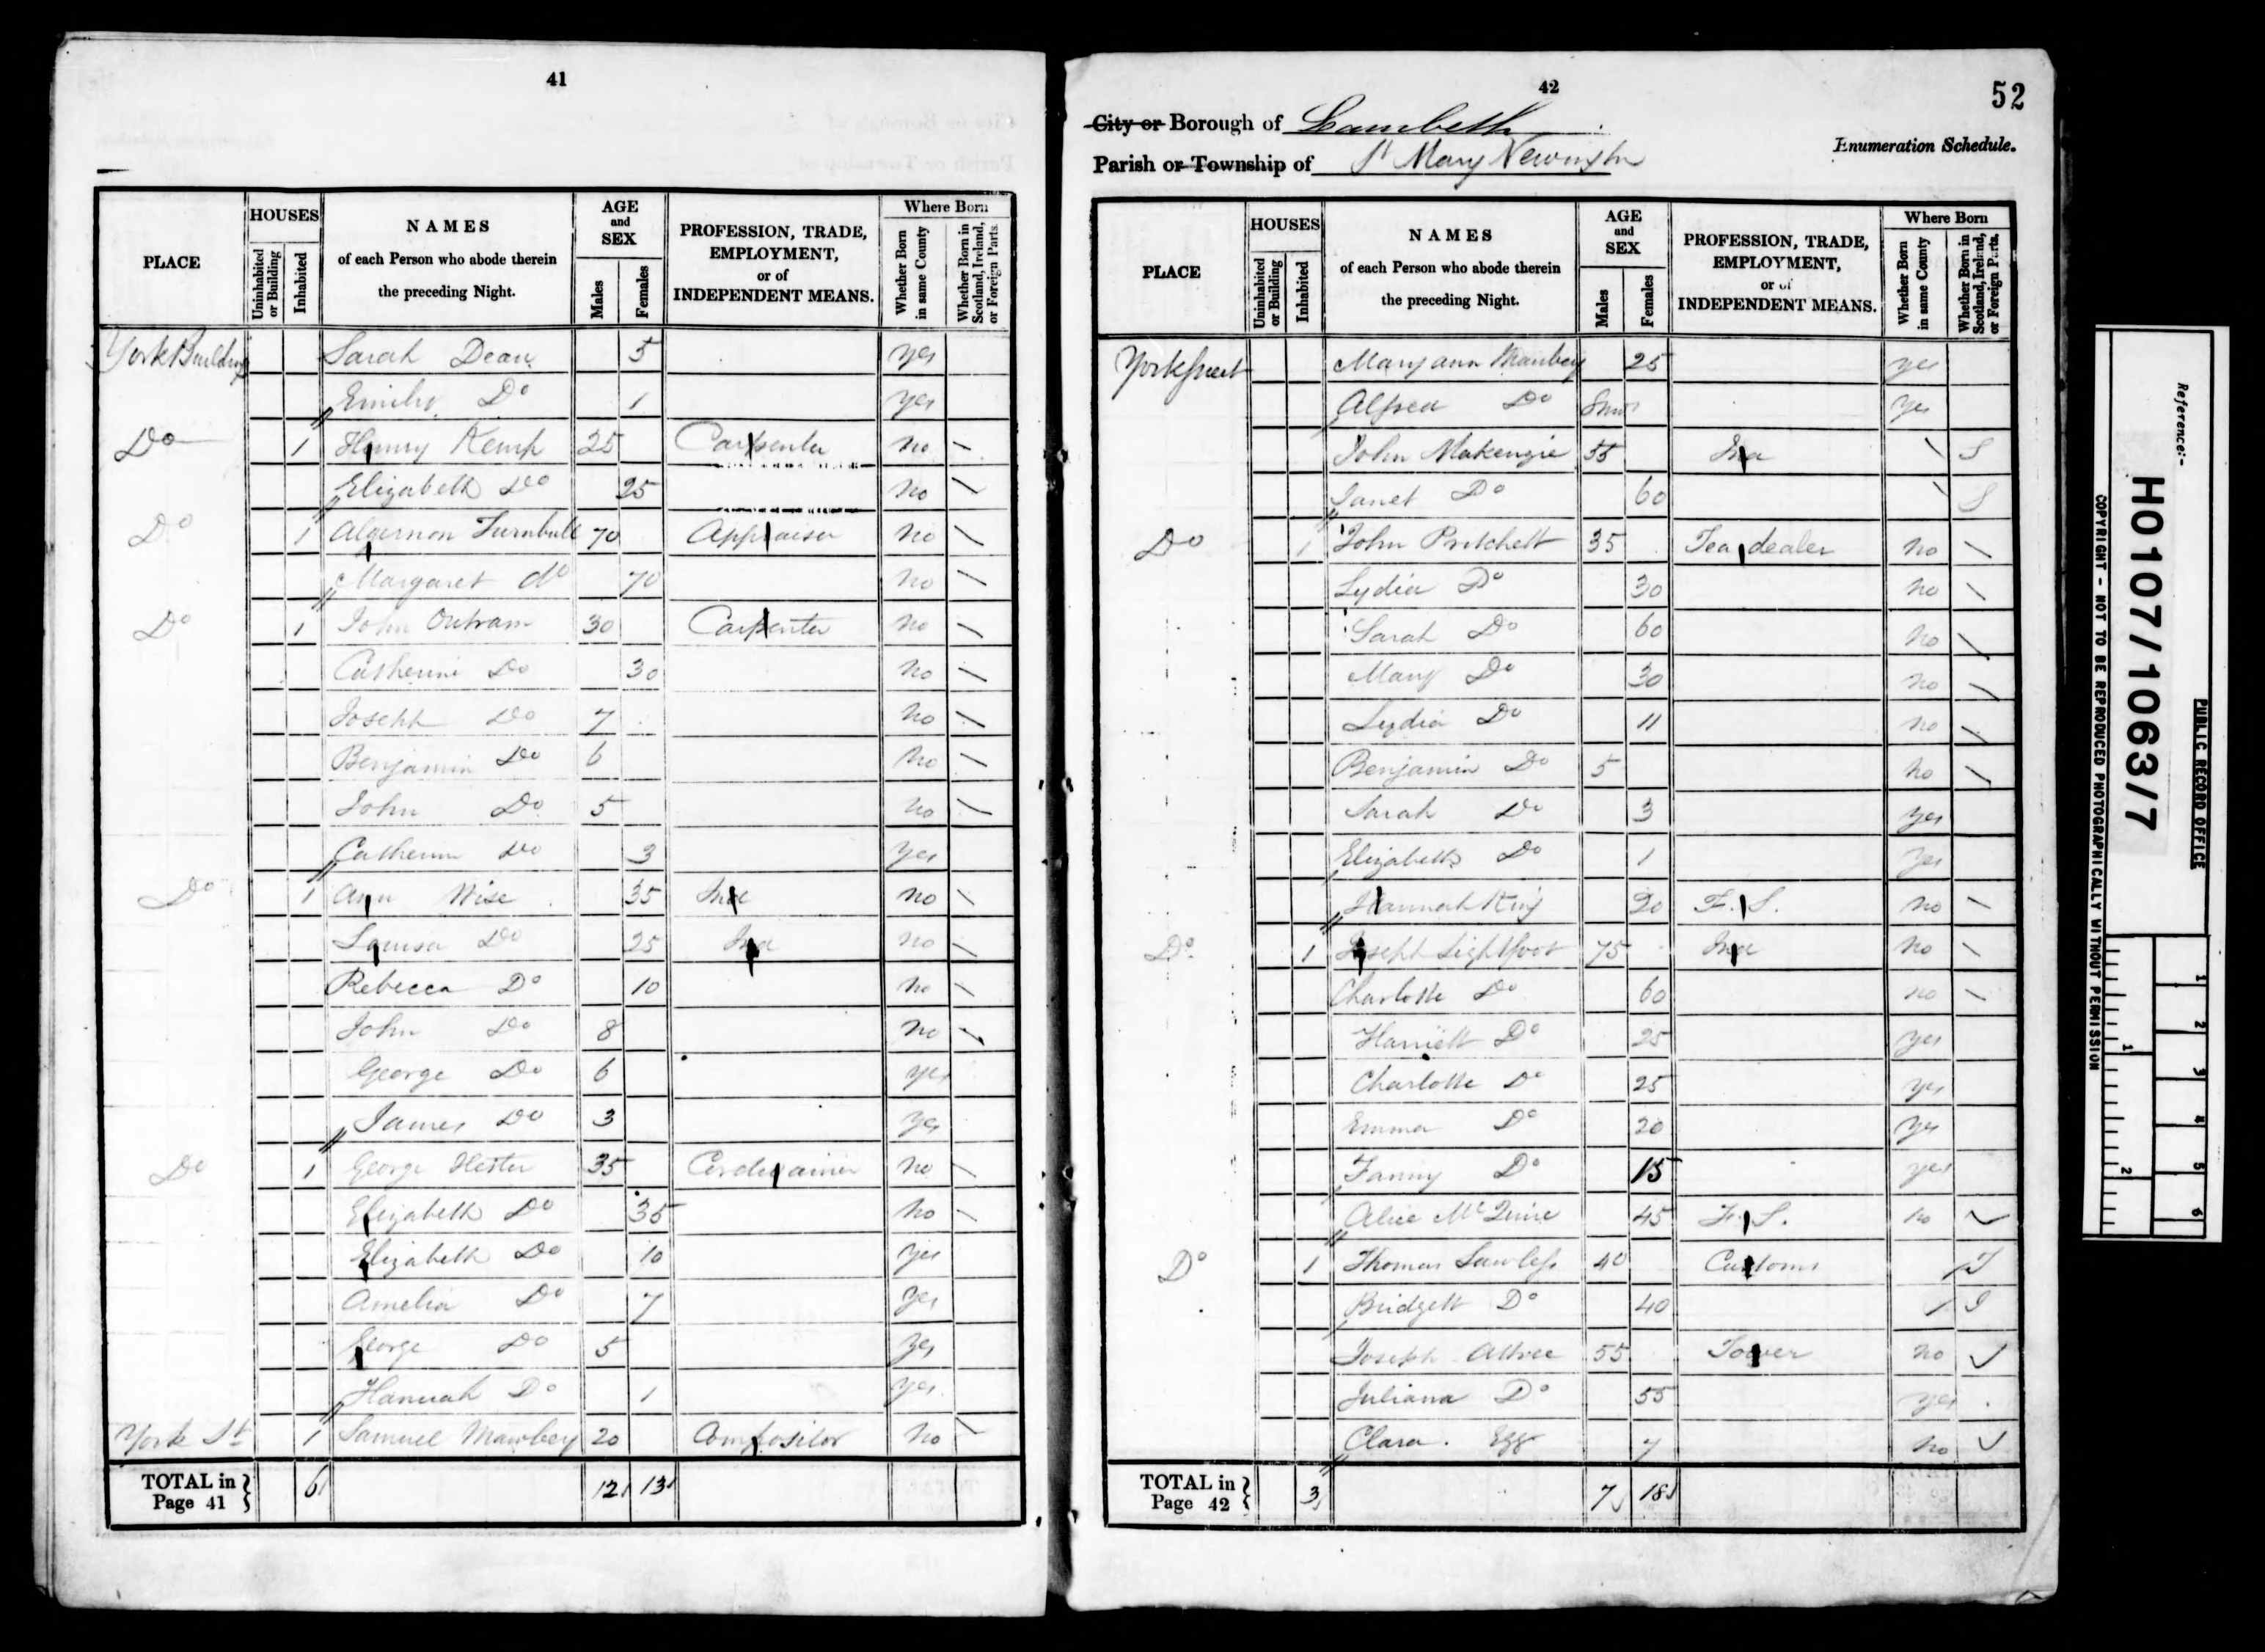 41
HOUSES
AGE and SEX
Where Born
PLACE
Uninhabited or Building
Inhabited
NAMES of each Person who abode therein the preceding Night.
Males
Females
PROFESSION, TRADE, EMPLOYMENT, or of INDEPENDENT MEANS.
Whether Born in same County
Whether Born in Scotland, Ireland, or Foreign Parts.
York Buildings Sarah Dean 5 yes
Emily Do 1 yes
Do 1 Henry Kemp 25 Carpenter no
Elizabeth Do 25 no
Do 1 Algernon Turnbull 70 Appraiser no
Margaret do 70 no
Do 1 John Outram 30 Carpenter no
Catherine Do 30 no
Joseph Do 7 no
Benjamin Do 6 no
John Do 5 no
Catherine Do 3 yes
Do 1 Ann Wise 35 Ind no
Louisa Do 25 Ind no
Rebecca Do 10 no
John Do 8 no
George Do 6 yes
James Do 3 yes
Do 1 George Hester 35 Cordwainer no
Elizabeth Do 35 no
Elizabeth Do 10 yes
Amelia Do 7 yes
George Do 5 yes
Hannah Do 1 yes
York St 1 Samuel Mawbey 20 Compositor no
TOTAL in Page 41 6 12 13
42
52
City or Borough of Lambeth
Enumeration Schedule.
Parish or Township of St Mary Newington
HOUSES
AGE and SEX
Where Born
PLACE
Uninhabited or Building
Inhabited
NAMES of each Person who abode therein the preceding Night.
Males
Females
PROFESSION, TRADE, EMPLOYMENT, or of INDEPENDENT MEANS.
Whether Born in same County
Whether Born in Scotland, Ireland, or Foreign Parts.
York Street Mary ann Mawbey 25 yes
Alfred Do 8 mos yes
John Makenzie 55 Ind S
Janet Do 60 S
Do 1 John Pritchett 35 Tea dealer no
Lydia Do 30 no
Sarah Do 60 no
Mary Do 30 no
Lydia Do 11 no
Benjamin Do 5 no
Sarah Do 3 yes
Elizabeth Do 1 yes
Hannah King 20 F. S. no
Do 1 Joseph Lightfoot 75 Ind no
Charlotte Do 60 no
Harriett Do 25 yes
Charlotte Do 25 yes
Emma Do 20 yes
Fanny Do 15 yes
Alice McQuire 45 F. S. no
Do 1 Thomas Lawless 40 Customs I
Bridgett Do 40 I
Joseph Attree 55 Tower no
Juliana Do 55 yes
Clara Egg 7 no
TOTAL in Page 42 3 7 18
Reference:-
HO107/1063/7
PUBLIC RECORD OFFICE
COPYRIGHT - NOT TO BE REPRODUCED PHOTOGRAPHICALLY WITHOUT PERMISSION
1 2 3 4 5 6
1 2